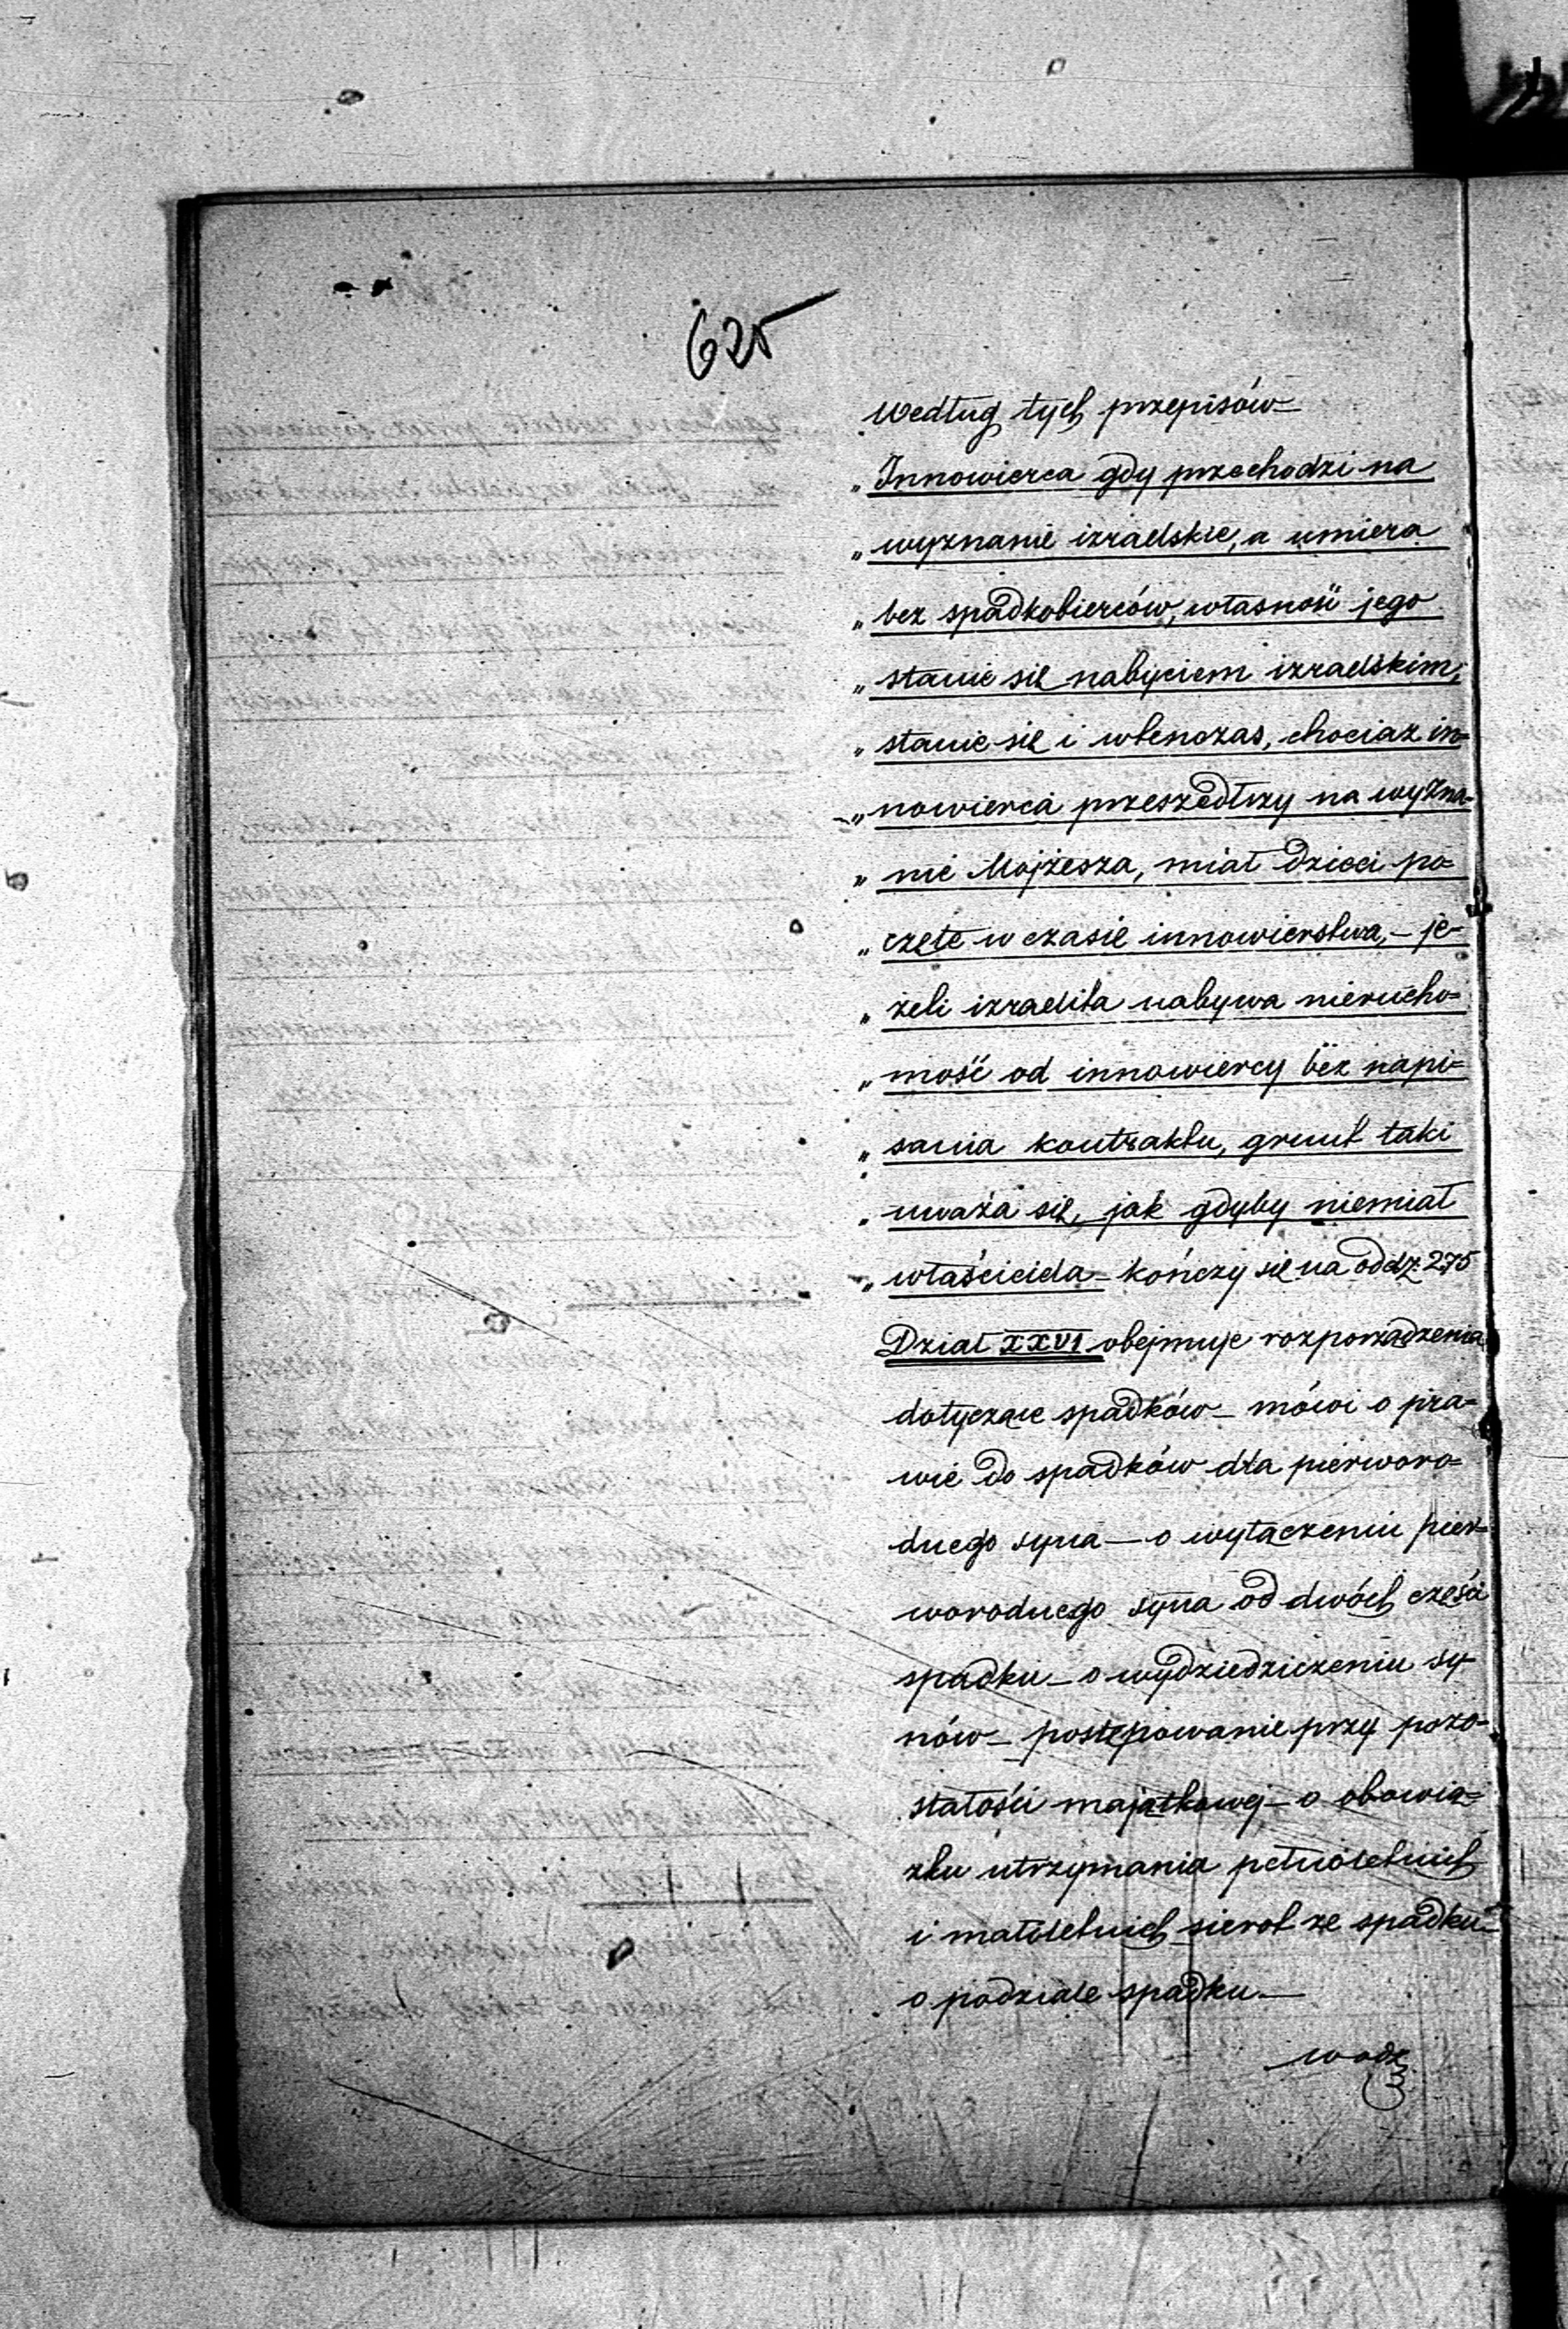 625
według tych przepisów—
„Innowierca gdy przechodzi na
„wyznanie izraelskie, a umiera
„bez spadkobierców, własność jego
„stanie się nabyciem izraelskim,
„stanie się i wtenczas, chociaż in=
„nowierca przeszedłszy na wyzna-
„nie Mojżesza, miał dzieci po=
„częte w czasie innowierstwa,— je-
„żeli izraelita nabywa nierucho=
„mość od innowiercy bez napi=
„sania kontraktu, grunt taki
„uważa się, jak gdyby niemiał
„właściciela— kończy się na oddz. 275
Dział XXVI obejmuje rozporządzenia
dotyczące spadków— mówi o pra=
wie do spadków dla pierworo=
dnego syna — o wyłączeniu pier=
worodnego syna od dwóch części
spadku— o wydziedziczeniu sy-
nów— postępowanie przy pozo-
stałości majątkowej— o obowią=
zku utrzymania pełnoletnich
i małoletnich sierot ze spadku—
o podziale spadku—